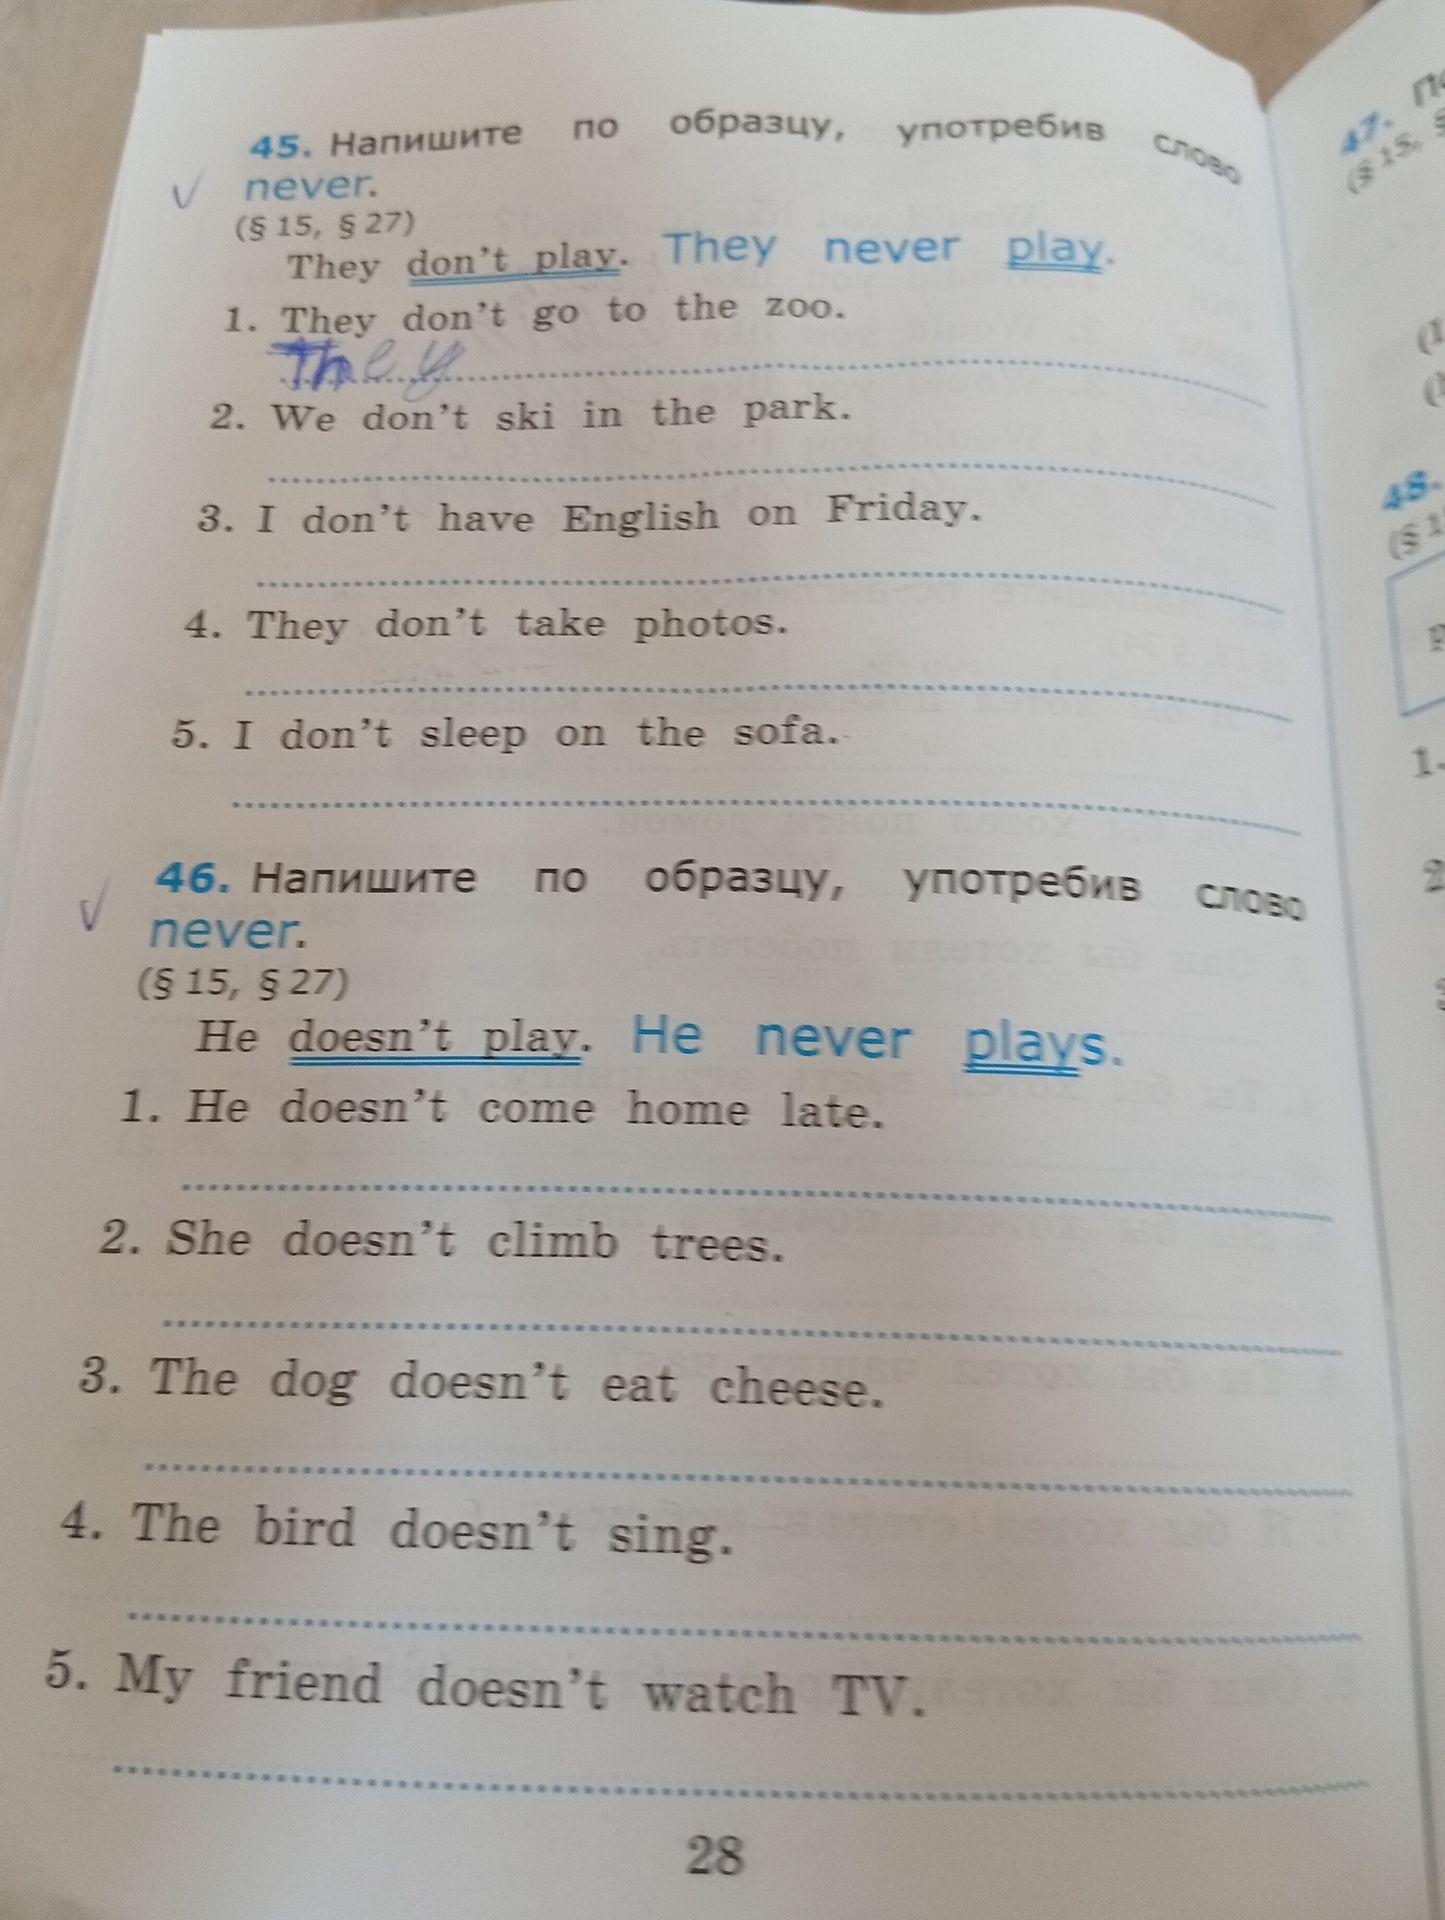 45. Напишите по образцу, употребив слово
never.
(§ 15, § 27)
They don't play. They never play.
1. They don't go to the zoo.
They
2. We don't ski in the park.
3. I don't have English on Friday.
4. They don't take photos.
5. I don't sleep on the sofa.
46. Напишите по образцу, употребив слово
never.
(§ 15, § 27)
He doesn't play. He never plays.
1. He doesn't come home late.
2. She doesn't climb trees.
3. The dog doesn't eat cheese.
4. The bird doesn't sing.
5. My friend doesn't watch TV.
28
47.
(§ 15,
48.
1.
2